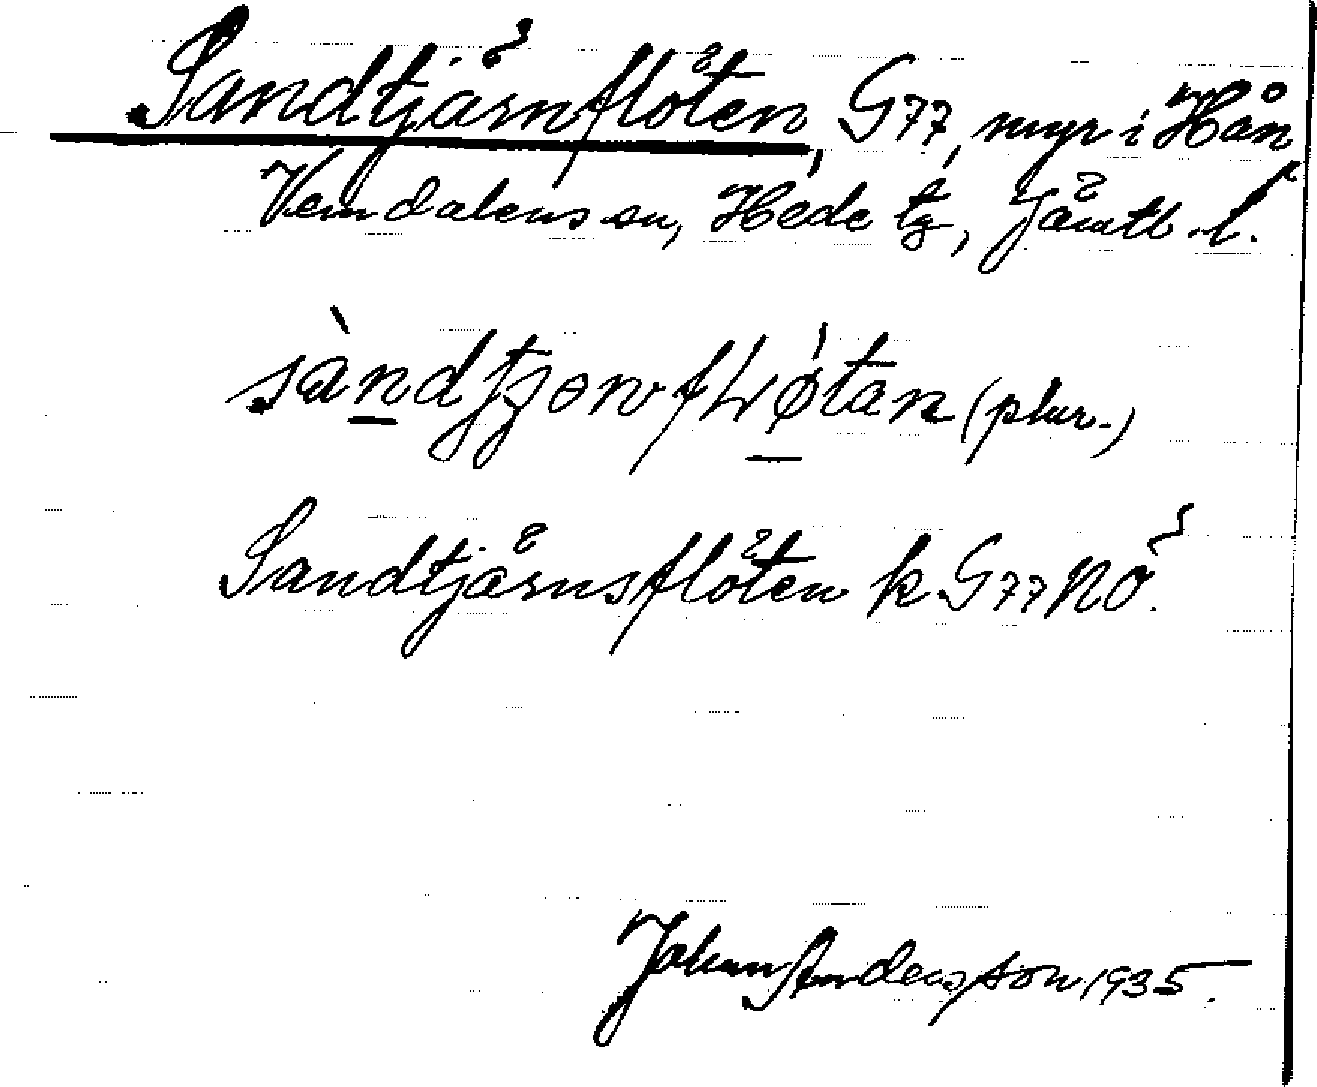 Sandtjärnflöten, G77, myr i Hån,
Vemdalens sn, Hede tg, Jämtl. l.
sàndtjɵnfLøtan (plur.)
Sandtjärnsflöten k. G77NÖ.
Johan Andersson 1935.